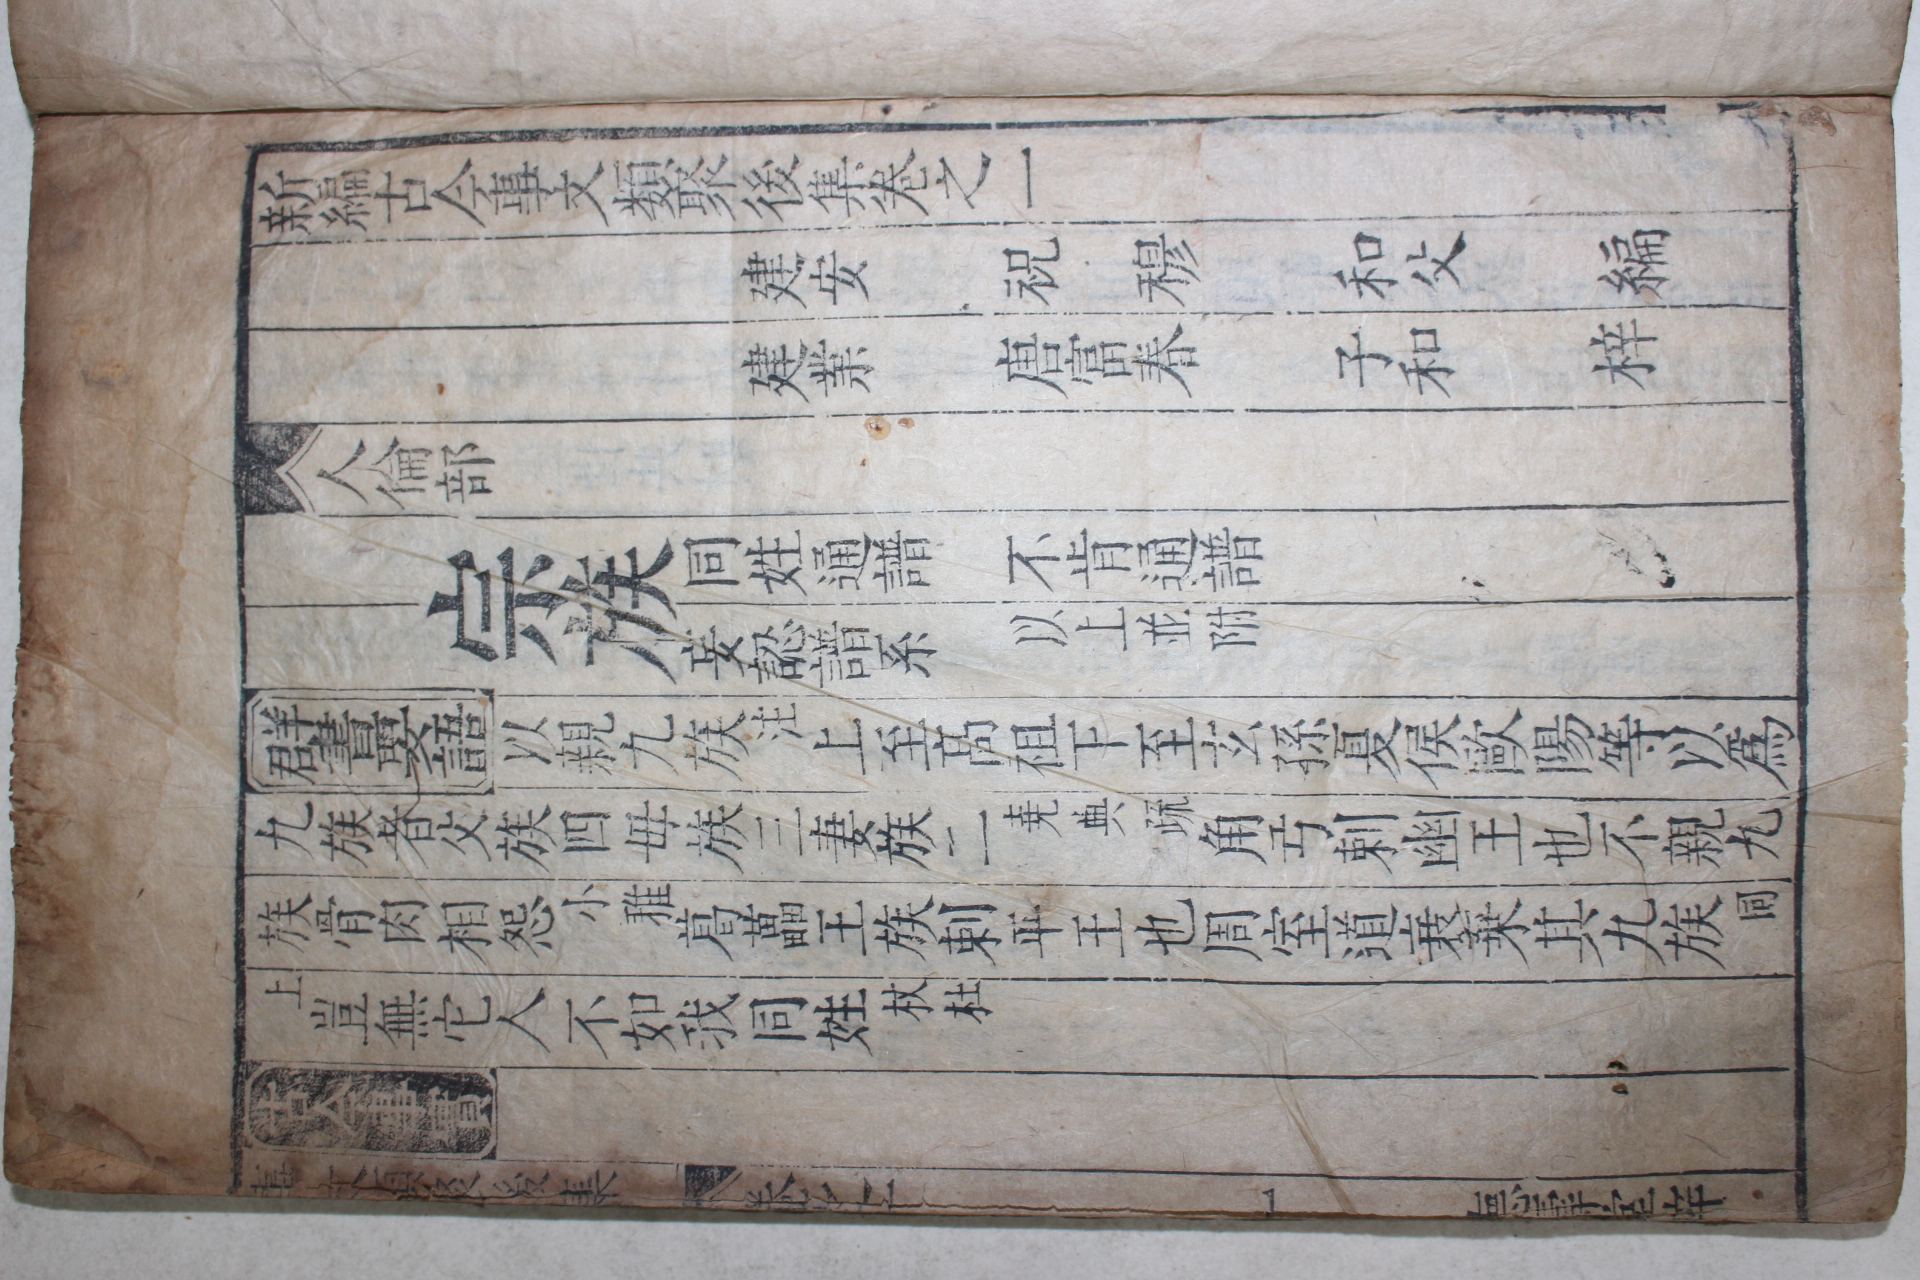 新編古今事文類聚後集卷之一
建安 祝 穆 和父 編
建業 唐富春 子和 梓
人倫部
宗族 同姓通譜 不肯通譜
妄認譜系 以上並附
群書要語 以親九族注上至高祖下至玄孫夏侯歐陽等以爲
九族者父族四母族三妻族二堯典疏角弓刺幽王也不親九
族骨肉相怨小雅葛藟王族刺平王也周室道衰棄其九族同
上豈無它人不如我同姓杕杜
古今事實
事文類聚後集 卷之一 一